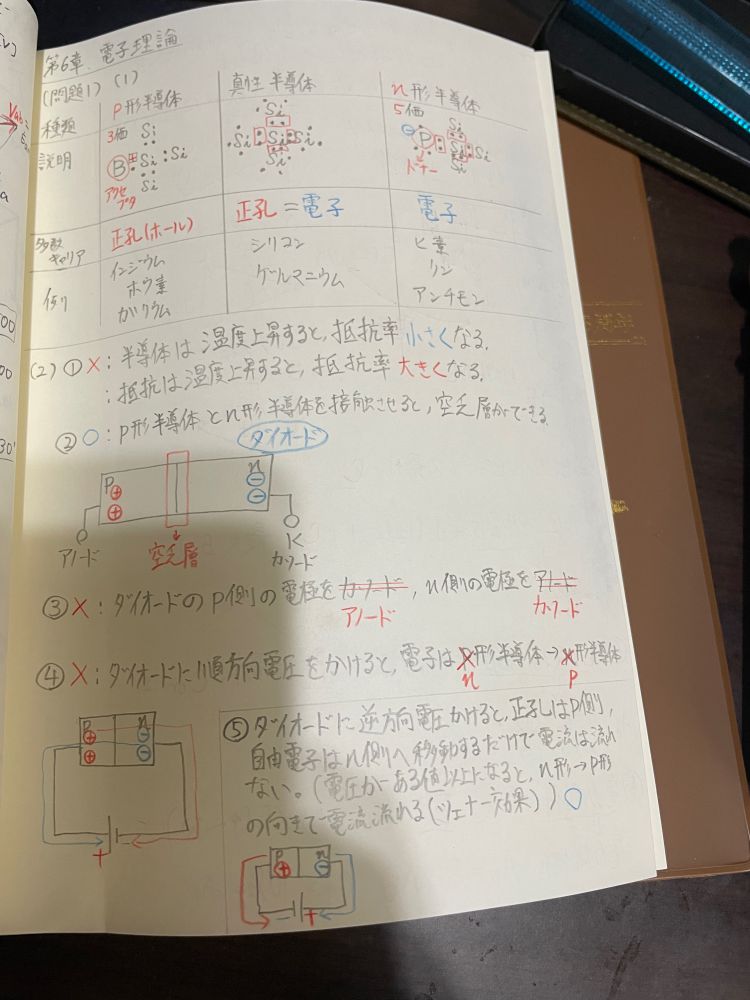 第6章 電子理論
(問題1) (1)
種類 P形半導体 真性半導体 n形半導体
説明 3価 5価
Si Si Si
B Si Si Si Si Si P Si Si
Si Si Si
アクセプタ ドナー
多数キャリア 正孔(ホール) 正孔=電子 電子
例 インジウム シリコン ヒ素
ホウ素 ゲルマニウム リン
ガリウム アンチモン
(2) ① X:半導体は温度上昇すると、抵抗率小さくなる。
:抵抗は温度上昇すると、抵抗率大きくなる。
② ○:P形半導体とn形半導体を接触させると、空乏層ができる。
ダイオード
P n
アノード 空乏層 K カソード
③ X:ダイオードのP側の電極をカソード、n側の電極をアノード
アノード カソード
④ X:ダイオードに順方向電圧をかけると、電子はP形半導体→n形半導体
n P
P n
+
⑤ ダイオードに逆方向電圧かけると、正孔はP側、
自由電子はn側へ移動するだけで電流は流れ
ない。(電圧がある値以上になると、n形→P形
の向きで電流流れる(ツェナー効果)) ○
P n
- +